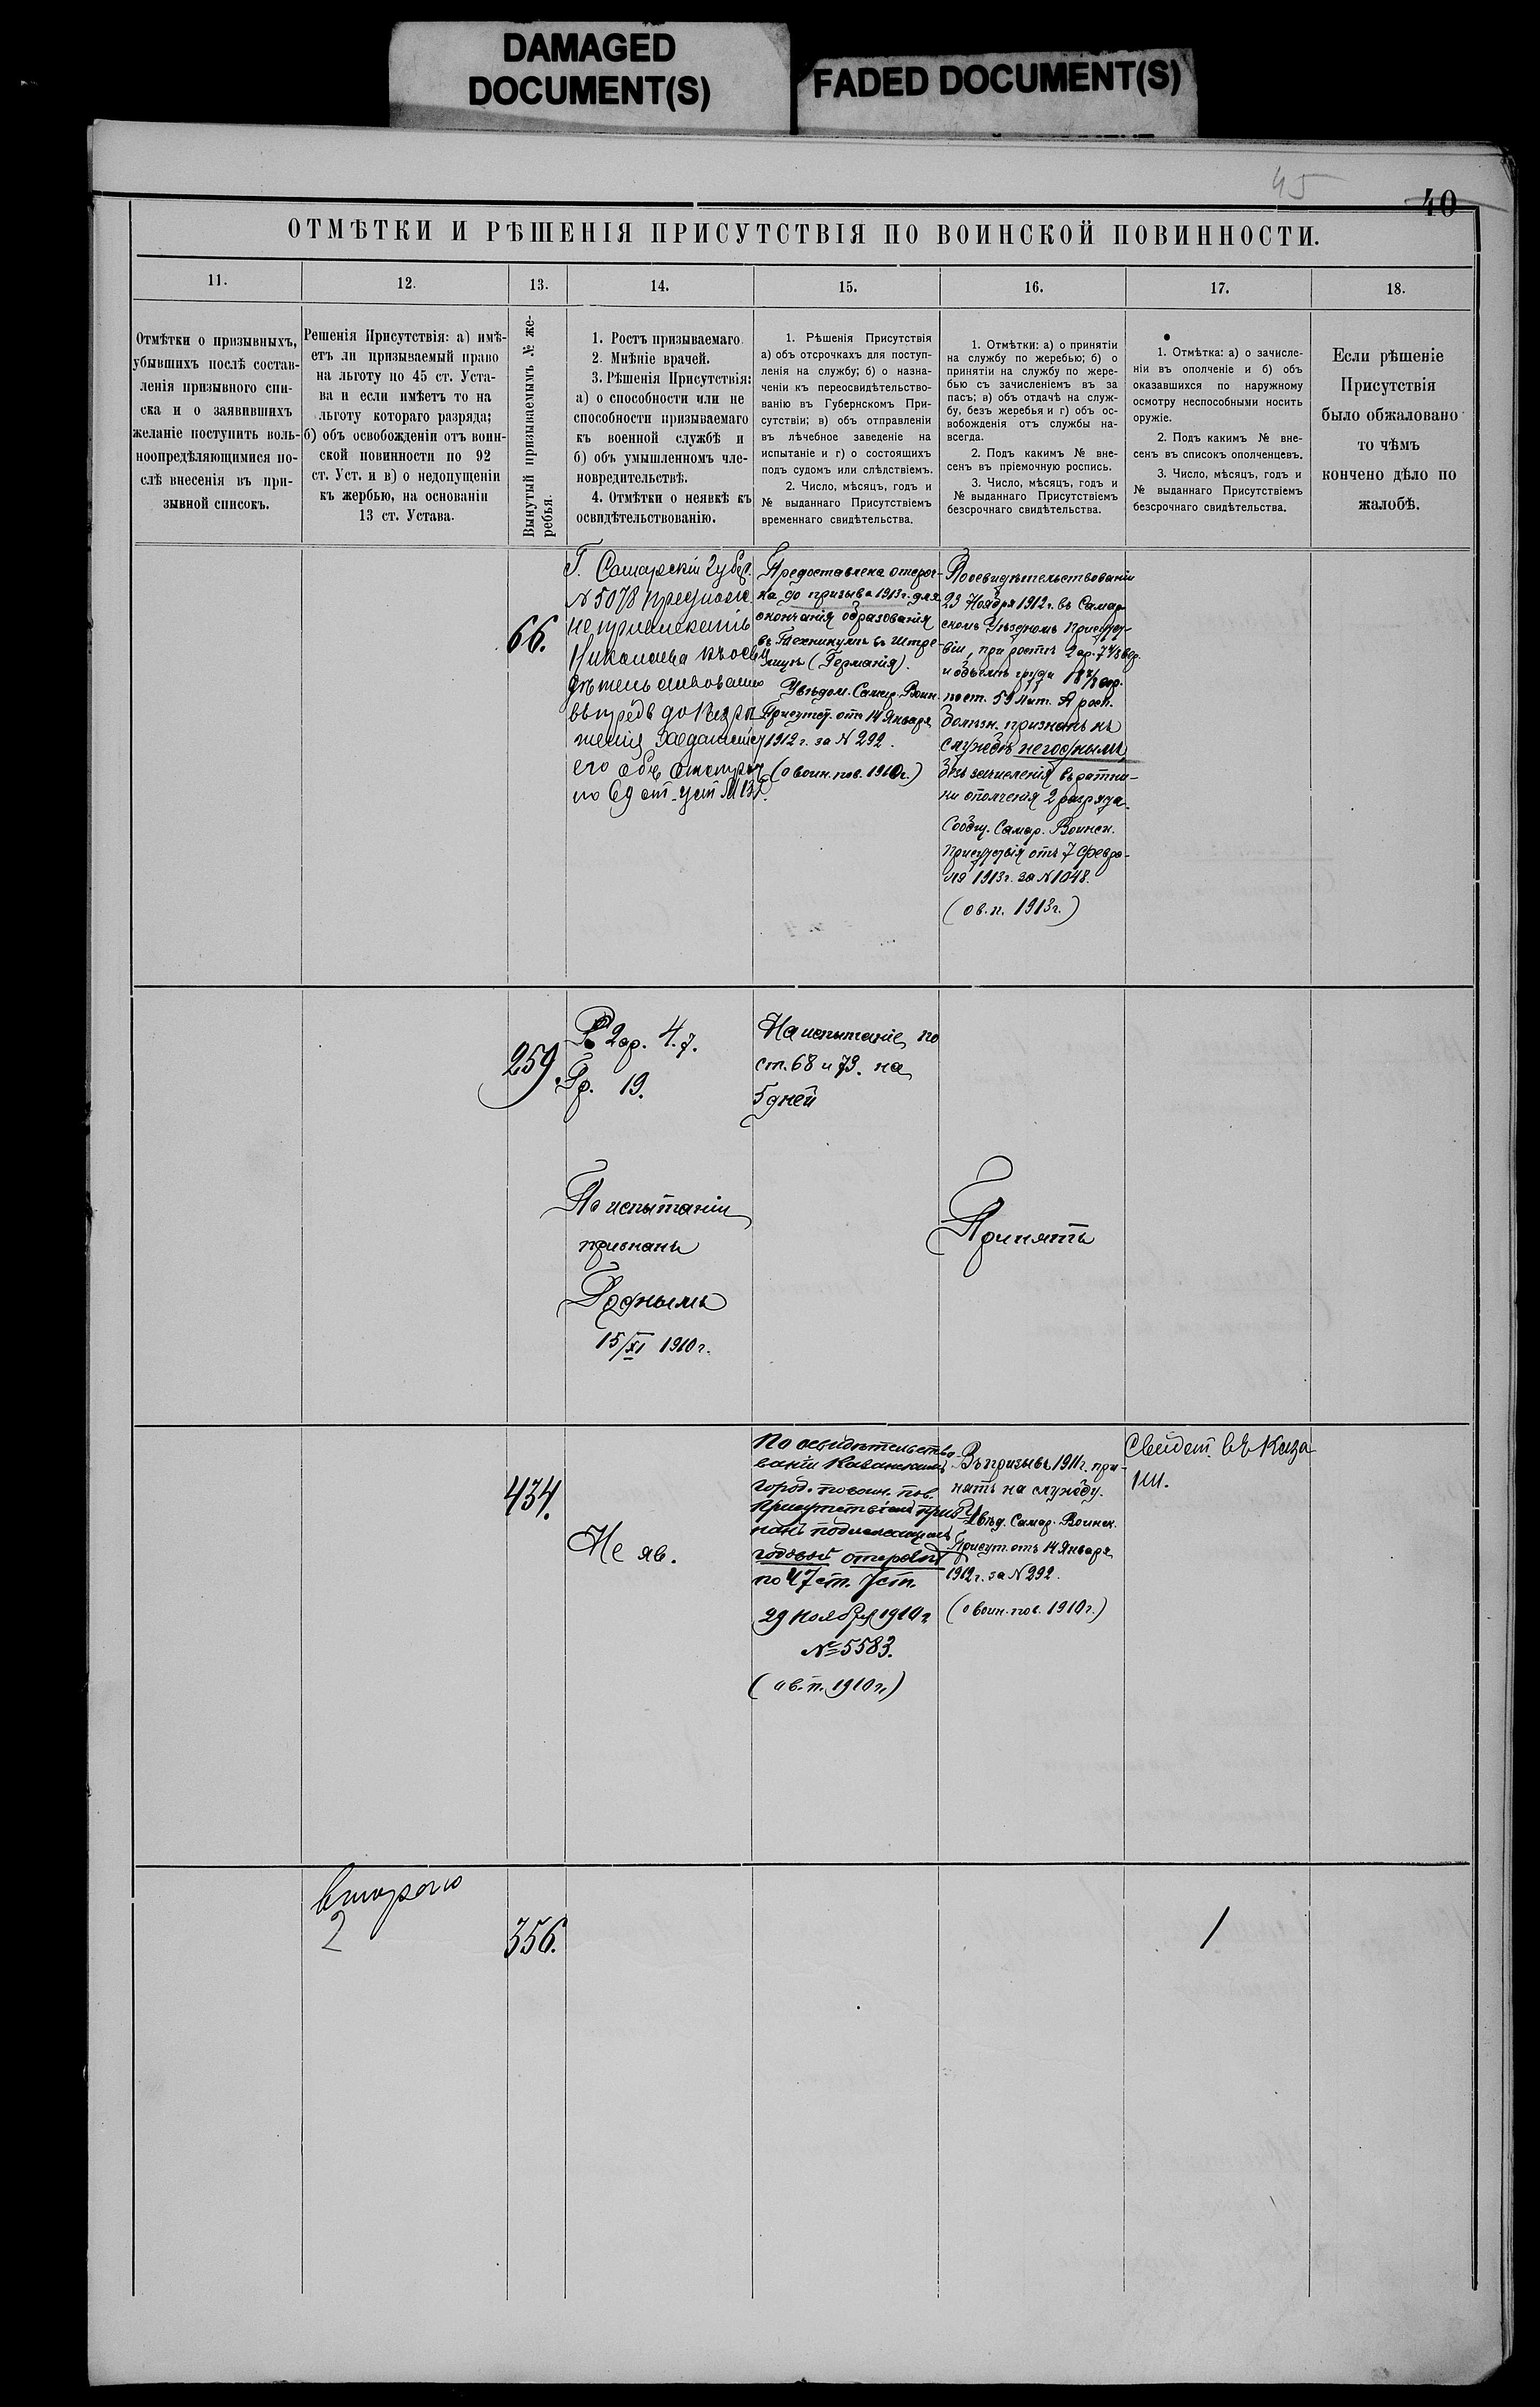 DAMAGED
DOCUMENT(S)
FADED DOCUMENT(S)
45
40
ОТМѢТКИ И РѢШЕНІЯ ПРИСУТСТВІЯ ПО ВОИНСКОЙ ПОВИННОСТИ.
11.
12.
13.
14.
15.
16.
17.
18.
Отмѣтки о призывныхъ,
убывшихъ послѣ состав-
ленія призывного спи-
ска и о заявившихъ
желаніе поступить воль-
ноопредѣляющимися по-
слѣ внесенія въ при-
зывной списокъ.
Решенія Присутствія: а) имѣ-
етъ ли призываемый право
на льготу по 45 ст. Уста-
ва и если имѣетъ то на
льготу котораго разряда;
б) объ освобожденіи отъ воин-
ской повинности по 92
ст. Уст. и в) о недопущеніи
къ жербью, на основаніи
13 ст. Устава.
Вынутый призываемымъ № же-
ребья.
1. Ростъ призываемаго.
2. Мнѣніе врачей.
3. Рѣшенія Присутствія:
а) о способности или не
способности призываемаго
къ военной службѣ и
б) объ умышленномъ чле-
новредительствѣ.
4. Отмѣтки о неявкѣ къ
освидѣтельствованію.
1. Рѣшенія Присутствія
а) объ отсрочкахъ для поступ-
ленія на службу; б) о назна-
ченіи къ переосвидѣтельство-
ванію въ Губернскомъ При-
сутствіи; в) объ отправленіи
въ лѣчебное заведеніе на
испытаніе и г) о состоящихъ
подъ судомъ или слѣдствіемъ.
2. Число, мѣсяцъ, годъ и
№ выданнаго Присутствіемъ
временнаго свидѣтельства.
1. Отмѣтки: а) о принятіи
на службу по жеребью; б) о
принятіи на службу по жере-
бью съ зачисленіемъ въ за
пасъ; в) объ отдачѣ на служ-
бу, безъ жеребья и г) объ ос-
вобожденія отъ службы на-
всегда.
2. Подъ какимъ № вне-
сенъ въ пріемочную роспись.
3. Число, мѣсяцъ, годъ и
№ выданнаго Присутствіемъ
безсрочнаго свидѣтельства.
1. Отмѣтка: а) о зачисле-
ніи въ ополченіе и б) объ
оказавшихся по наружному
осмотру неспособными носить
оружіе.
2. Подъ какимъ № вне-
сенъ въ списокъ ополченцевъ.
3. Число, мѣсяцъ, годъ и
№ выданнаго Присутствіемъ
безсрочнаго свидѣтельства.
Если рѣшеніе
Присутствія
было обжаловано
то чѣмъ
кончено дѣло по
жалобѣ.
66.
Г. Самарскій Губер.
№ 5078 предлож.
не привлекать
Николаева къ осви
дѣтельствованію
впредь до разрѣ
шенія ходатайст
его объ отсрочк
по 69 ст. Уст
Предоставлена отсроч-
ка до призыва 1913 г. для
окончанія образованія
въ Техникумѣ въ Штре-
лицѣ (Германія).
Увѣдом. Самар. Воин.
Присутст. отъ 14 Января
1912 г. за № 292.
(о воин. пов. 1910 г.)
По освидѣтельствованіи
23 Ноября 1912 г. въ Самар
скомъ Уѣздномъ Присутст-
віи, при ростѣ 2 ар. 7 4/8 вер.
и объемѣ груди 18 4/8 вер.
по ст. 59 Лит. А росп.
болѣзн. признанъ къ
службѣ негоднымъ,
безъ зачисленія въ ратни-
ки ополченія 2 разряда.
Сообщ. Самар. Воинск.
Присутствія отъ 7 Февра-
ля 1913 г. за № 1048.
(о в. п. 1913 г.)
259.
Р. 2 ар. 4. 7.
Гр. 19.
На испытаніе, по
ст. 68 и 79. на
5 дней
По испытаніи
признанъ
Годнымъ
15/XI 1910 г.
Принятъ
434.
Не яв.
По освидѣтельство
ваніи Казанскимъ
город. по воин. пов.
Присутствіемъ приз
нанъ подлежащимъ
годовой отсрочкѣ
по 47 ст. Уст.
29 Ноября 1910 г.
№ 5583.
(о в. п. 1910 г.)
Въ призывѣ 1911 г. при-
нятъ на службу.
Увѣд. Самар. Воинск.
Присут. отъ 14 Января
1912 г. за № 292.
(о воин. пов. 1910 г.)
Свидѣт. въ Каза
ни.
второго
2
356.
1